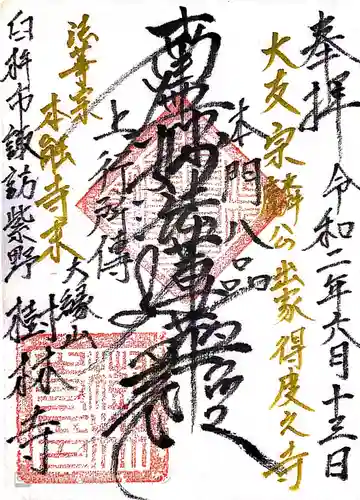 奉拝
令和二年六月十三日
大友宗麟公出家得度之寺
本門八品
南無妙法蓮華経
上行所傳
法華宗
本能寺末
大縁山
臼杵市諏訪紫野
桂林寺